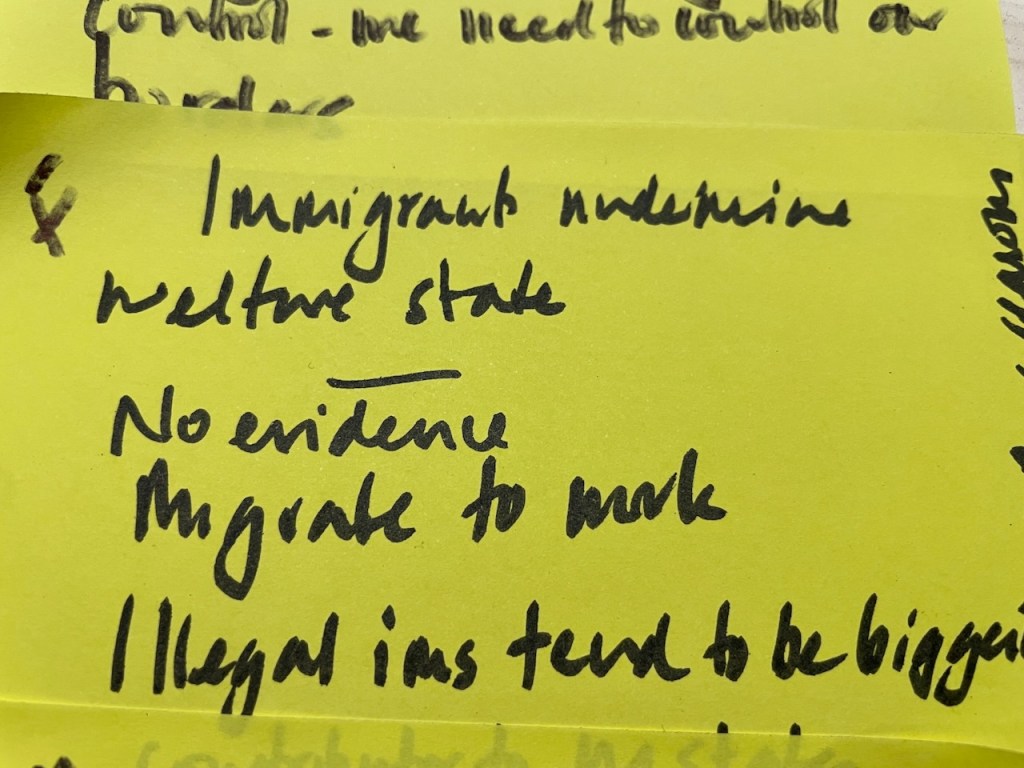 Control - we need to control our
borders
Immigrants undermine
welfare state
No evidence
Migrate to work
Illegal ims tend to be bigger
contributors to the state